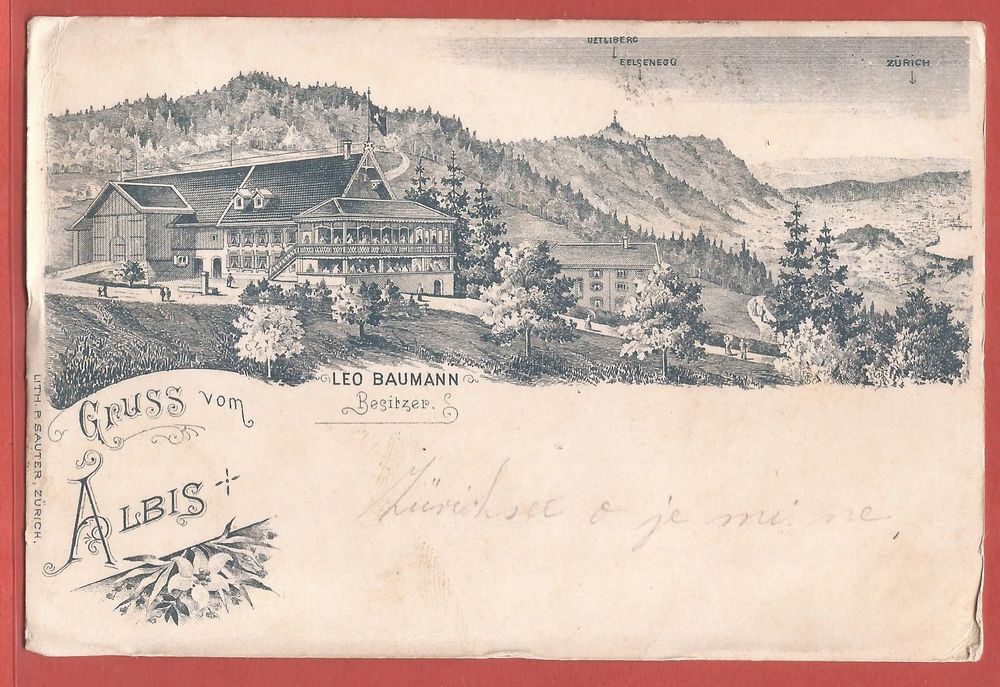 UETLIBERG
FELSENEGG
ZÜRICH
LEO BAUMANN
Besitzer.
GRUSS vom
ALBIS
LITH. P. SAUTER, ZÜRICH.
Zürichsee o je mi ne